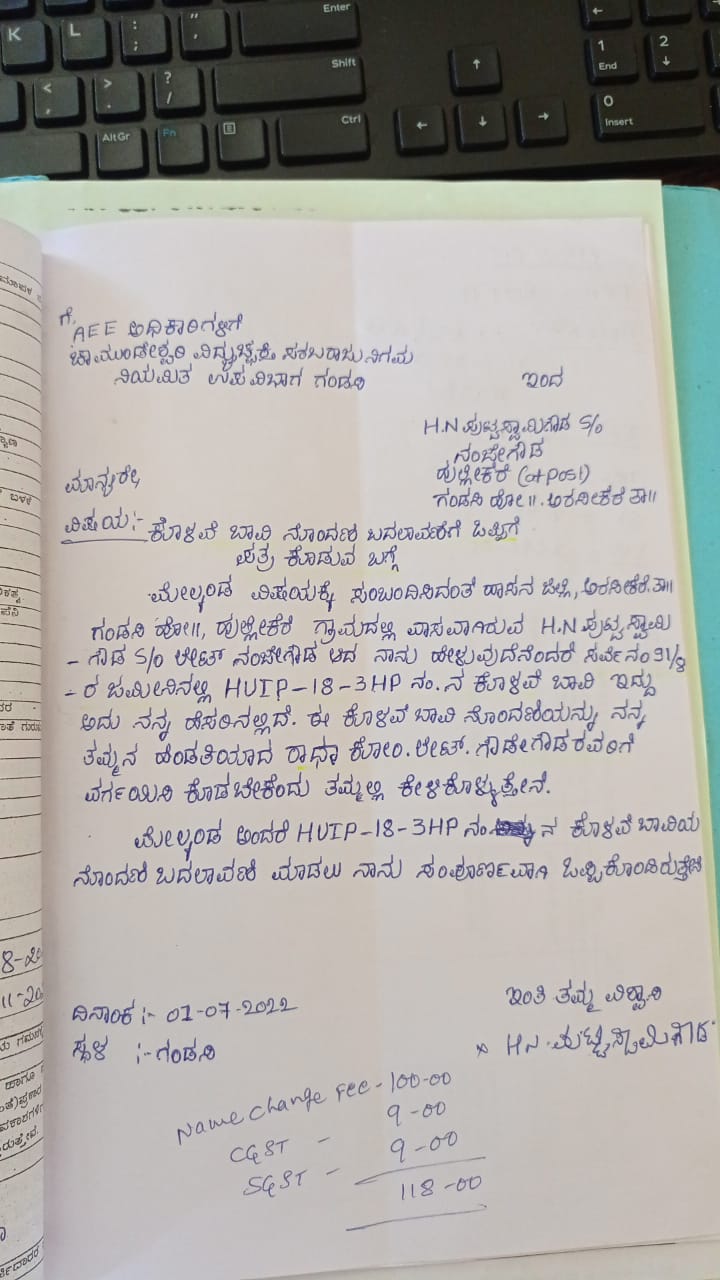 K
L
:
;
"
'
Enter
<
,
>
.
?
/
Shift
↑
1
End
2
↓
AltGr
Fn
Ctrl
←
↓
→
0
Insert
ಗೆ,
AEE ಅಧಿಕಾರಿಗಳಿಗೆ
ಚಾಮುಂಡೇಶ್ವರಿ ವಿದ್ಯುಚ್ಛಕ್ತಿ ಸರಬರಾಜು ನಿಗಮ
ನಿಯಮಿತ ಉಪವಿಭಾಗ ಗಂಡಸಿ
ಇಂದ
H.N ಪುಟ್ಟಸ್ವಾಮಿಗೌಡ S/o
ನಂಜೇಗೌಡ
ಹುಲ್ಲೇಕೆರೆ (at post)
ಗಂಡಸಿ ಹೋ॥. ಅರಸೀಕೆರೆ ತಾ॥
ಮಾನ್ಯರೇ,
ವಿಷಯ:- ಕೊಳವೆ ಬಾವಿ ನೊಂದಣಿ ಬದಲಾವಣೆಗೆ ಒಪ್ಪಿಗೆ
ಪತ್ರ ಕೊಡುವ ಬಗ್ಗೆ
ಮೇಲ್ಕಂಡ ವಿಷಯಕ್ಕೆ ಸಂಬಂದಿಸಿದಂತೆ ಹಾಸನ ಜಿಲ್ಲೆ, ಅರಸೀಕೆರೆ.ತಾ॥
ಗಂಡಸಿ ಹೋ॥, ಹುಲ್ಲೇಕೆರೆ ಗ್ರಾಮದಲ್ಲಿ ವಾಸವಾಗಿರುವ H.N ಪುಟ್ಟಸ್ವಾಮಿ
- ಗೌಡ S/o ಲೇಟ್ ನಂಜೇಗೌಡ ಆದ ನಾನು ಹೇಳುವುದೆನೆಂದರೆ ಸರ್ವೆ ನಂ 31/8
- ರ ಜಮೀನಿನಲ್ಲಿ HUIP-18-3HP ನಂ. ನ ಕೊಳವೆ ಬಾವಿ ಇದ್ದು
ಅದು ನನ್ನ ಹೆಸರಿನಲ್ಲಿದೆ. ಈ ಕೊಳವೆ ಬಾವಿ ನೊಂದಣಿಯನ್ನು ನನ್ನ
ತಮ್ಮನ ಹೆಂಡತಿಯಾದ ರಾಧಾ ಕೋಂ. ಲೇಟ್. ಗೌಡೇಗೌಡ ರವರಿಗೆ
ವರ್ಗಯಿಸಿ ಕೊಡಬೇಕೆಂದು ತಮ್ಮಲ್ಲಿ ಕೇಳಿಕೊಳ್ಳುತ್ತೇನೆ.
ಮೇಲ್ಕಂಡ ಅಂದರೆ HUIP-18-3HP ನಂ. ನ ಕೊಳವೆ ಬಾವಿಯ
ನೊಂದಣಿ ಬದಲಾವಣೆ ಮಾಡಲು ನಾನು ಸಂಪೂರ್ಣವಾಗಿ ಒಪ್ಪಿಕೊಂಡಿರುತ್ತೇನೆ
ದಿನಾಂಕ :- 07-07-2022
ಇಂತಿ ತಮ್ಮ ವಿಶ್ವಾಸಿ
ಸ್ಥಳ :- ಗಂಡಸಿ
x H.N. ಪುಟ್ಟಸ್ವಾಮಿಗೌಡ
Name Change Fee - 100-00
CGST - 9-00
SGST - 9-00
118-00